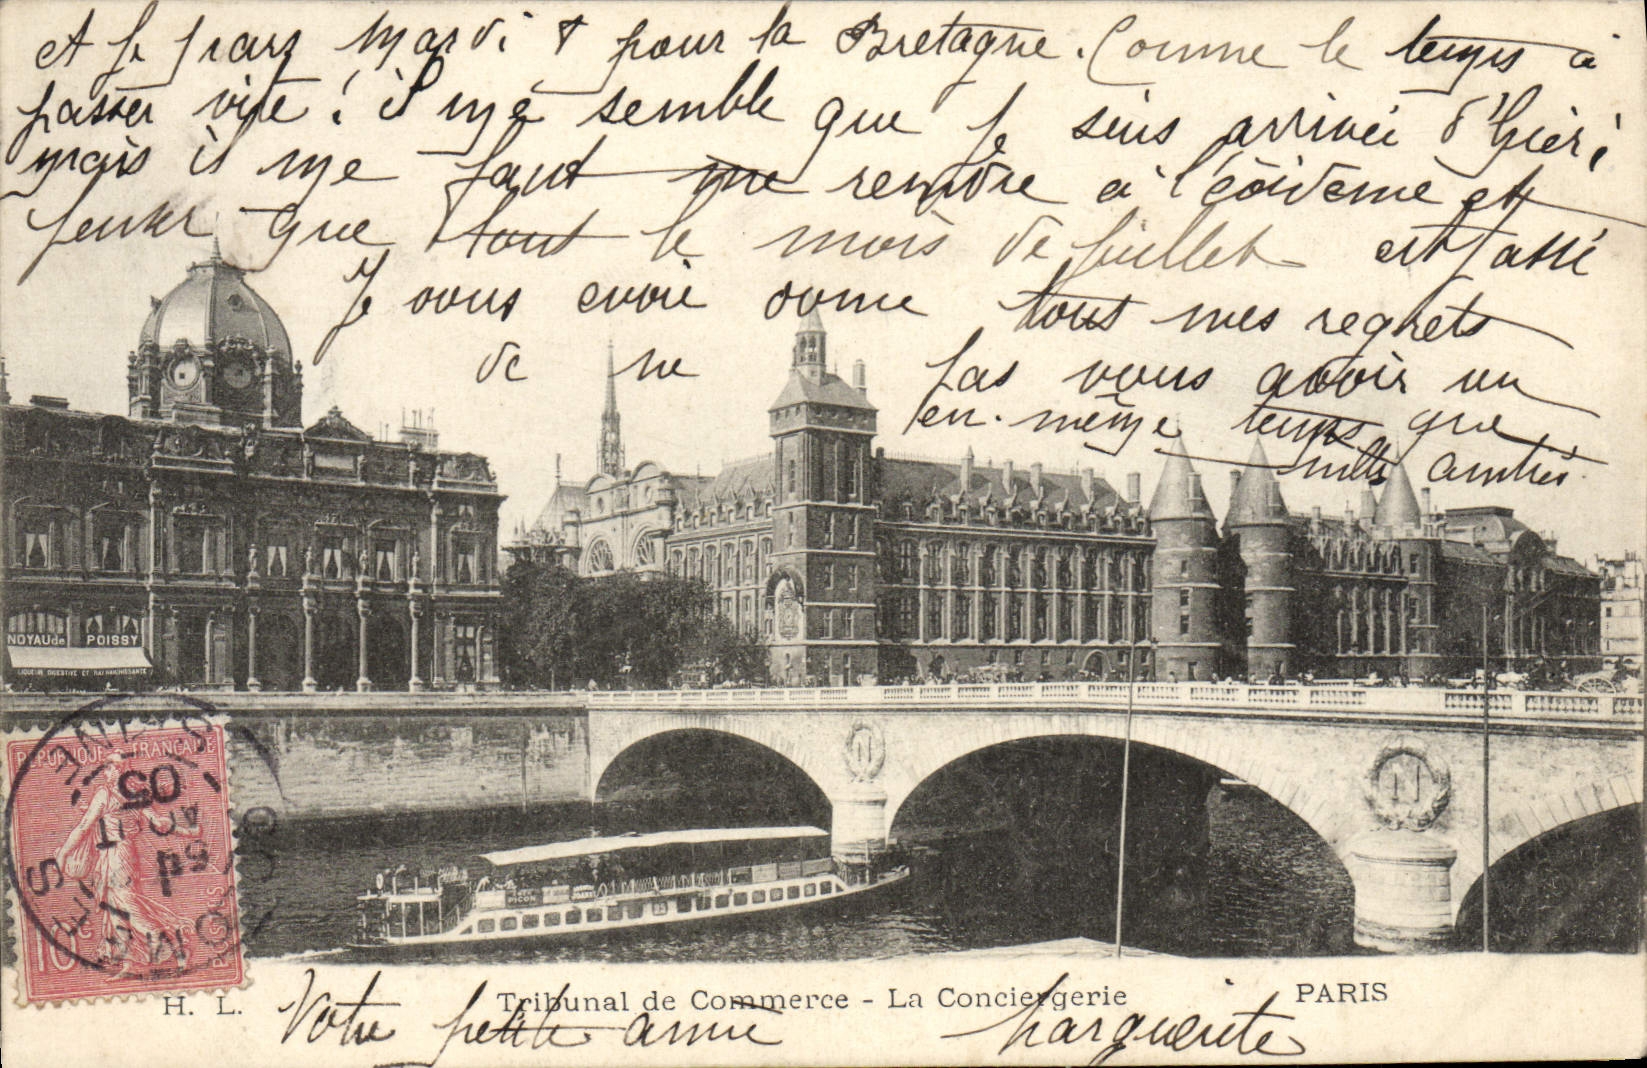 et Je pars Mardi 8 pour la Bretagne. Comme le temps à
passer vite! il me semble que je suis arrivée d'hier;
mais il me faut me rendre à l'évidence et
penser que tout le mois de juillet est passé
Je vous envoie comme tous mes regrets
de ne pas vous avoir vu
en même temps que
mille amitiés
NOYAU de POISSY
LIQUEUR DIGESTIVE ET RAFRAICHISSANTE
N
N
PICON
REPUBLIQUE FRANÇAISE
10c
POSTES
05
AOUT
H. L. Tribunal de Commerce - La Conciergerie PARIS
Votre petite amie Marguerite